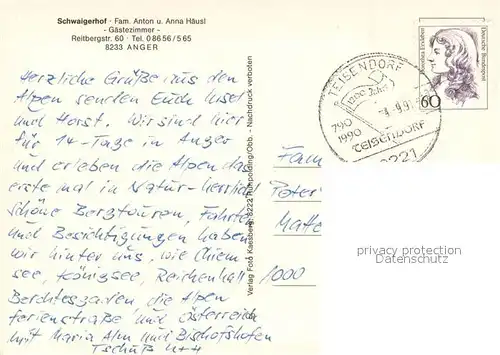 Schwaigerhof · Fam. Anton u. Anna Häusl
- Gästezimmer -
Reitbergstr. 60 · Tel. 0 86 56 / 5 65
8233 ANGER
Herzliche Grüße aus den
Alpen senden Euch Insel
und Horst. Wir sind hier
für 14-Tage in Anger
und erleben die Alpen das
erste mal in Natur-herrlich!
schöne Bergtouren, Fahrten
und Besichtigungen haben
wir hinter uns, wie Chiem
see, Königsee, Reichenhall
Berchtesgaden die Alpen
ferienstraße und Österreich
mit Maria Alm und Bischofshofen
Tschüß
Verlag Foto Kaasberg, 8222 Ruhpolding/Obb. - Nachdruck verboten
TEISENDORF
1200 Jahre
790
1990
TEISENDORF
8221
Deutsche Bundespost
60
Fam
Peter
Matte
1000
privacy protection
Datenschutz